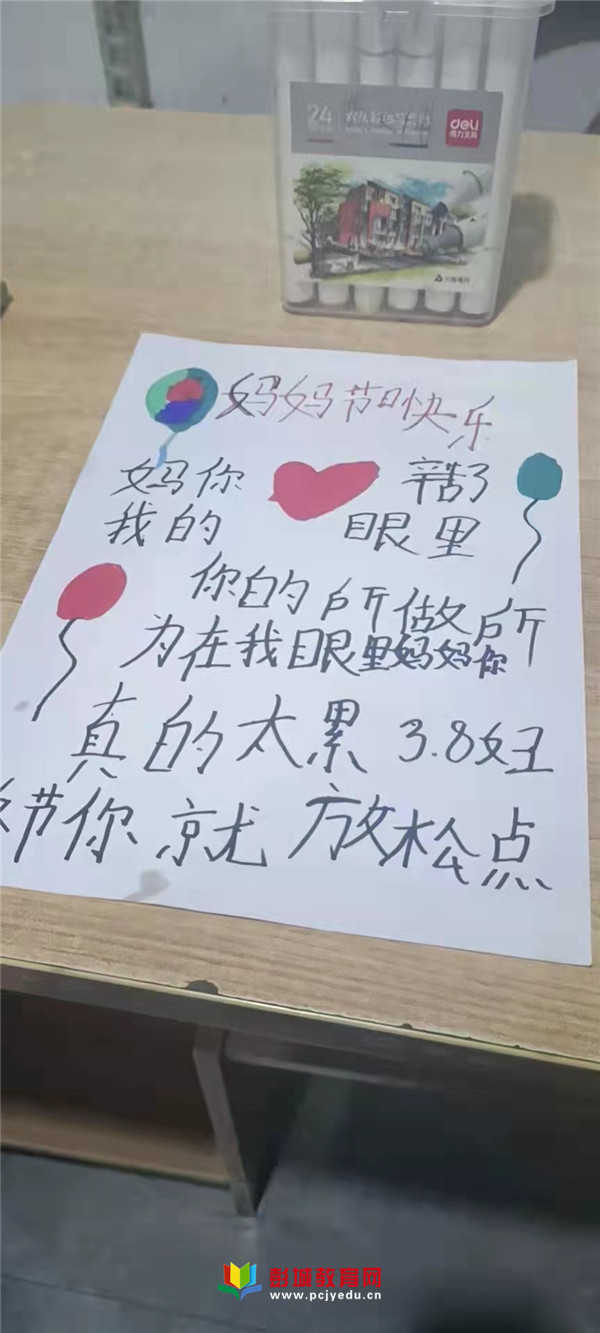 24
deli
得力文具
妈妈节日快乐
妈你 辛苦了
我的 眼里
你的所做所
为在我眼里妈妈你
真的太累 3.8妇
女节你就放松点
彭城教育网
www.pcjyedu.cn